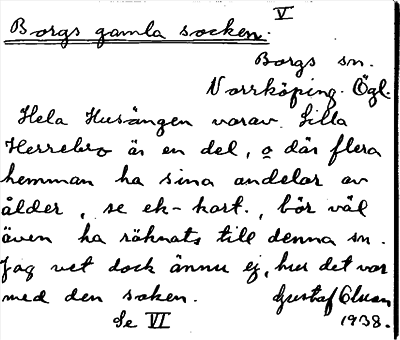 V
Borgs gamla socken.
Borgs sn.
Norrköping. Ögl.
Hela Husängen varav Lilla
Herrebro är en del, o där flera
hemman ha sina andelar av
ålder, se ek-kart., bör väl
även ha räknats till denna sn.
Jag vet dock ännu ej, hur det var
med den saken. Gustaf Olsson
Se VI 1938.